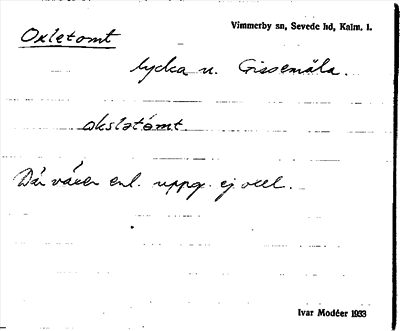 Oxletomt
Vimmerby sn, Sevede hd, Kalm. l.
lycka u. Gissemåla.
okslətómt.
Där växer enl. uppg. ej oxel.
Ivar Modéer 1933